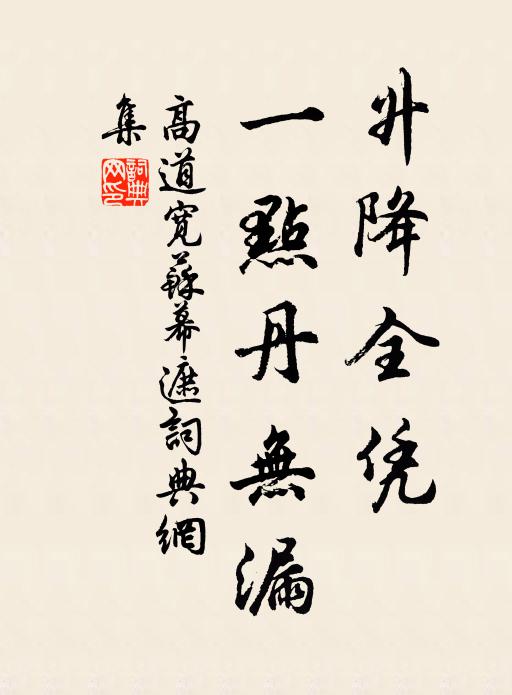 升降全凭
一點丹無漏
高道寬蘇幕遮詞典網
集
詞典網印